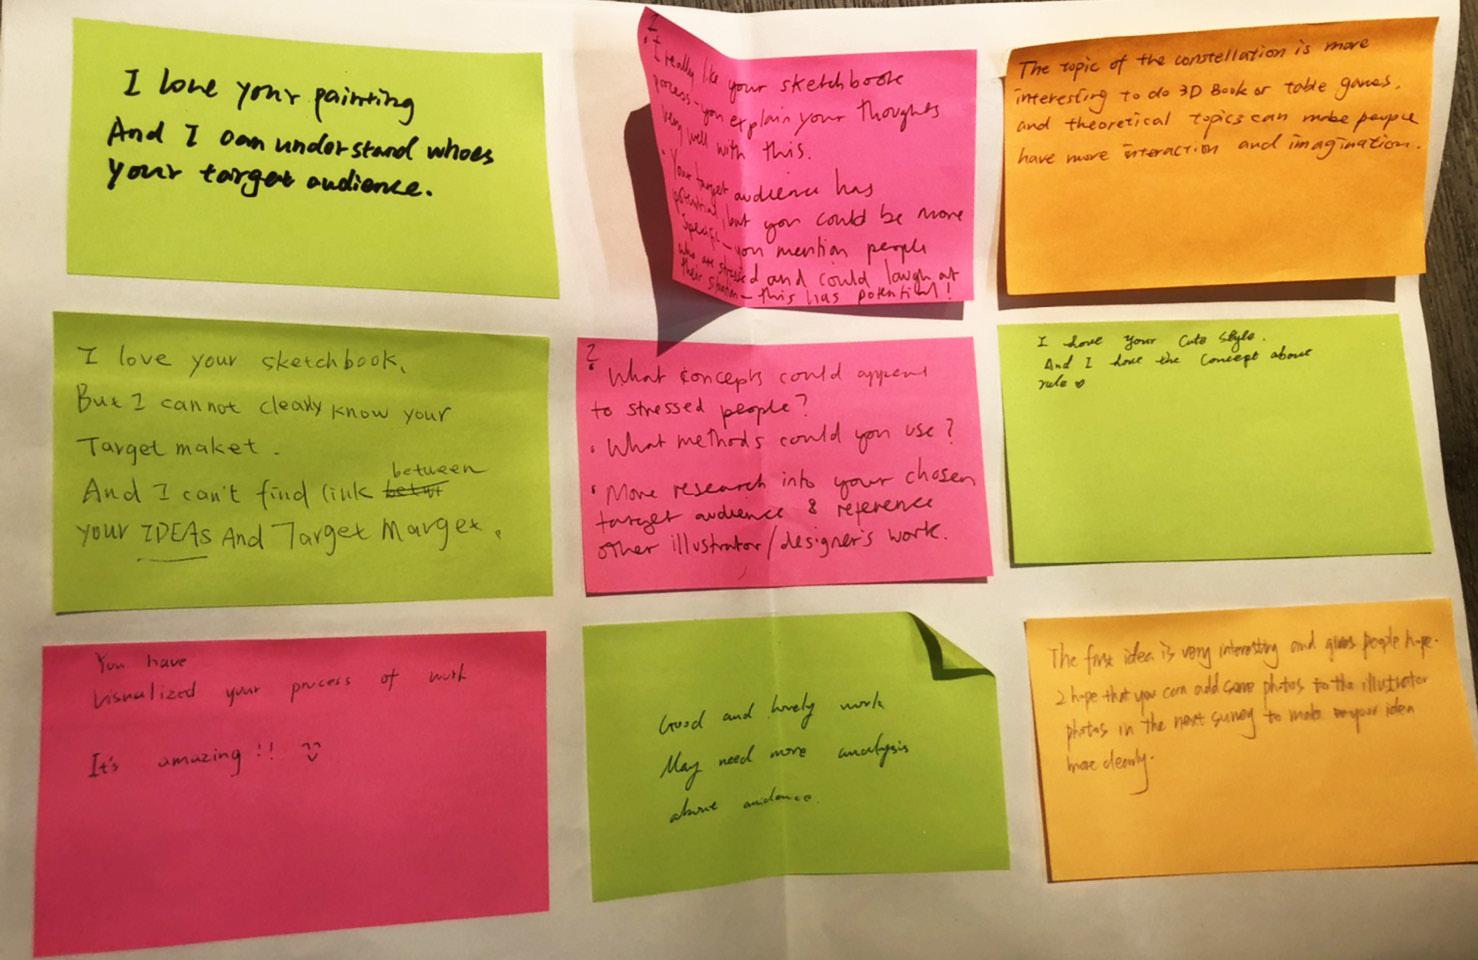 I love your painting
And I can understand whoes
your target audience.
1.
• I really like your sketchbook
process – you explain your thoughts
very well with this.
• Your target audience has
potential, but you could be more
specific – you mention people
who are stressed and could laugh at
their situation – this has potential!
The topic of the constellation is more
interesting to do 3D Book or table games.
and theoretical topics can make people
have more interaction and imagination.
I love your sketchbook.
But I cannot clearly know your
Target maket.
between
And I can't find link
your IDEAs And Target Marget.
2
• What concepts could appeal
to stressed people?
• What methods could you use?
• More research into your chosen
target audience & reference
other illustrator/designer's work.
I love your Cute style.
And I love the Concept above
rule
You have
visualized your process of work
It's amazing!!
Good and lovely work
May need more analysis
about audience.
The first idea is very interesting and gives people hope.
I hope that you can add some photos to the illustrator
photos in the next survey to make your idea
more clearly.